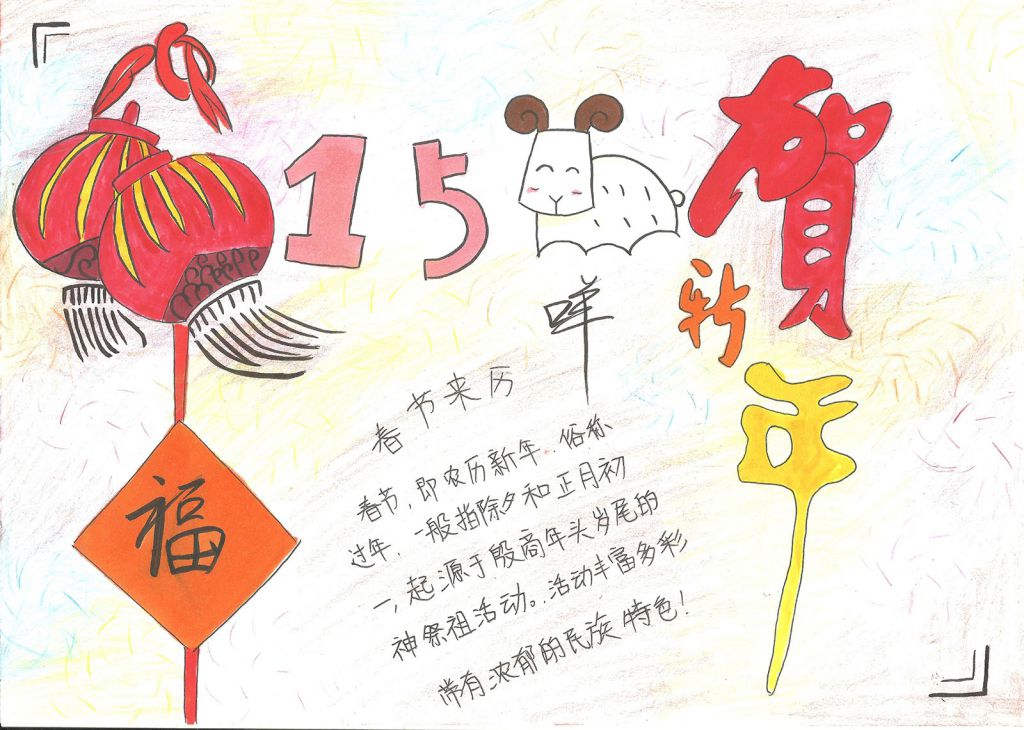 15
賀
新
年
咩
福
春节来历
春节,即农历新年 俗称
过年,一般指除夕和正月初
一,起源于殷商年头岁尾的
神祭祖活动。活动丰富多彩
带有浓郁的民族特色!